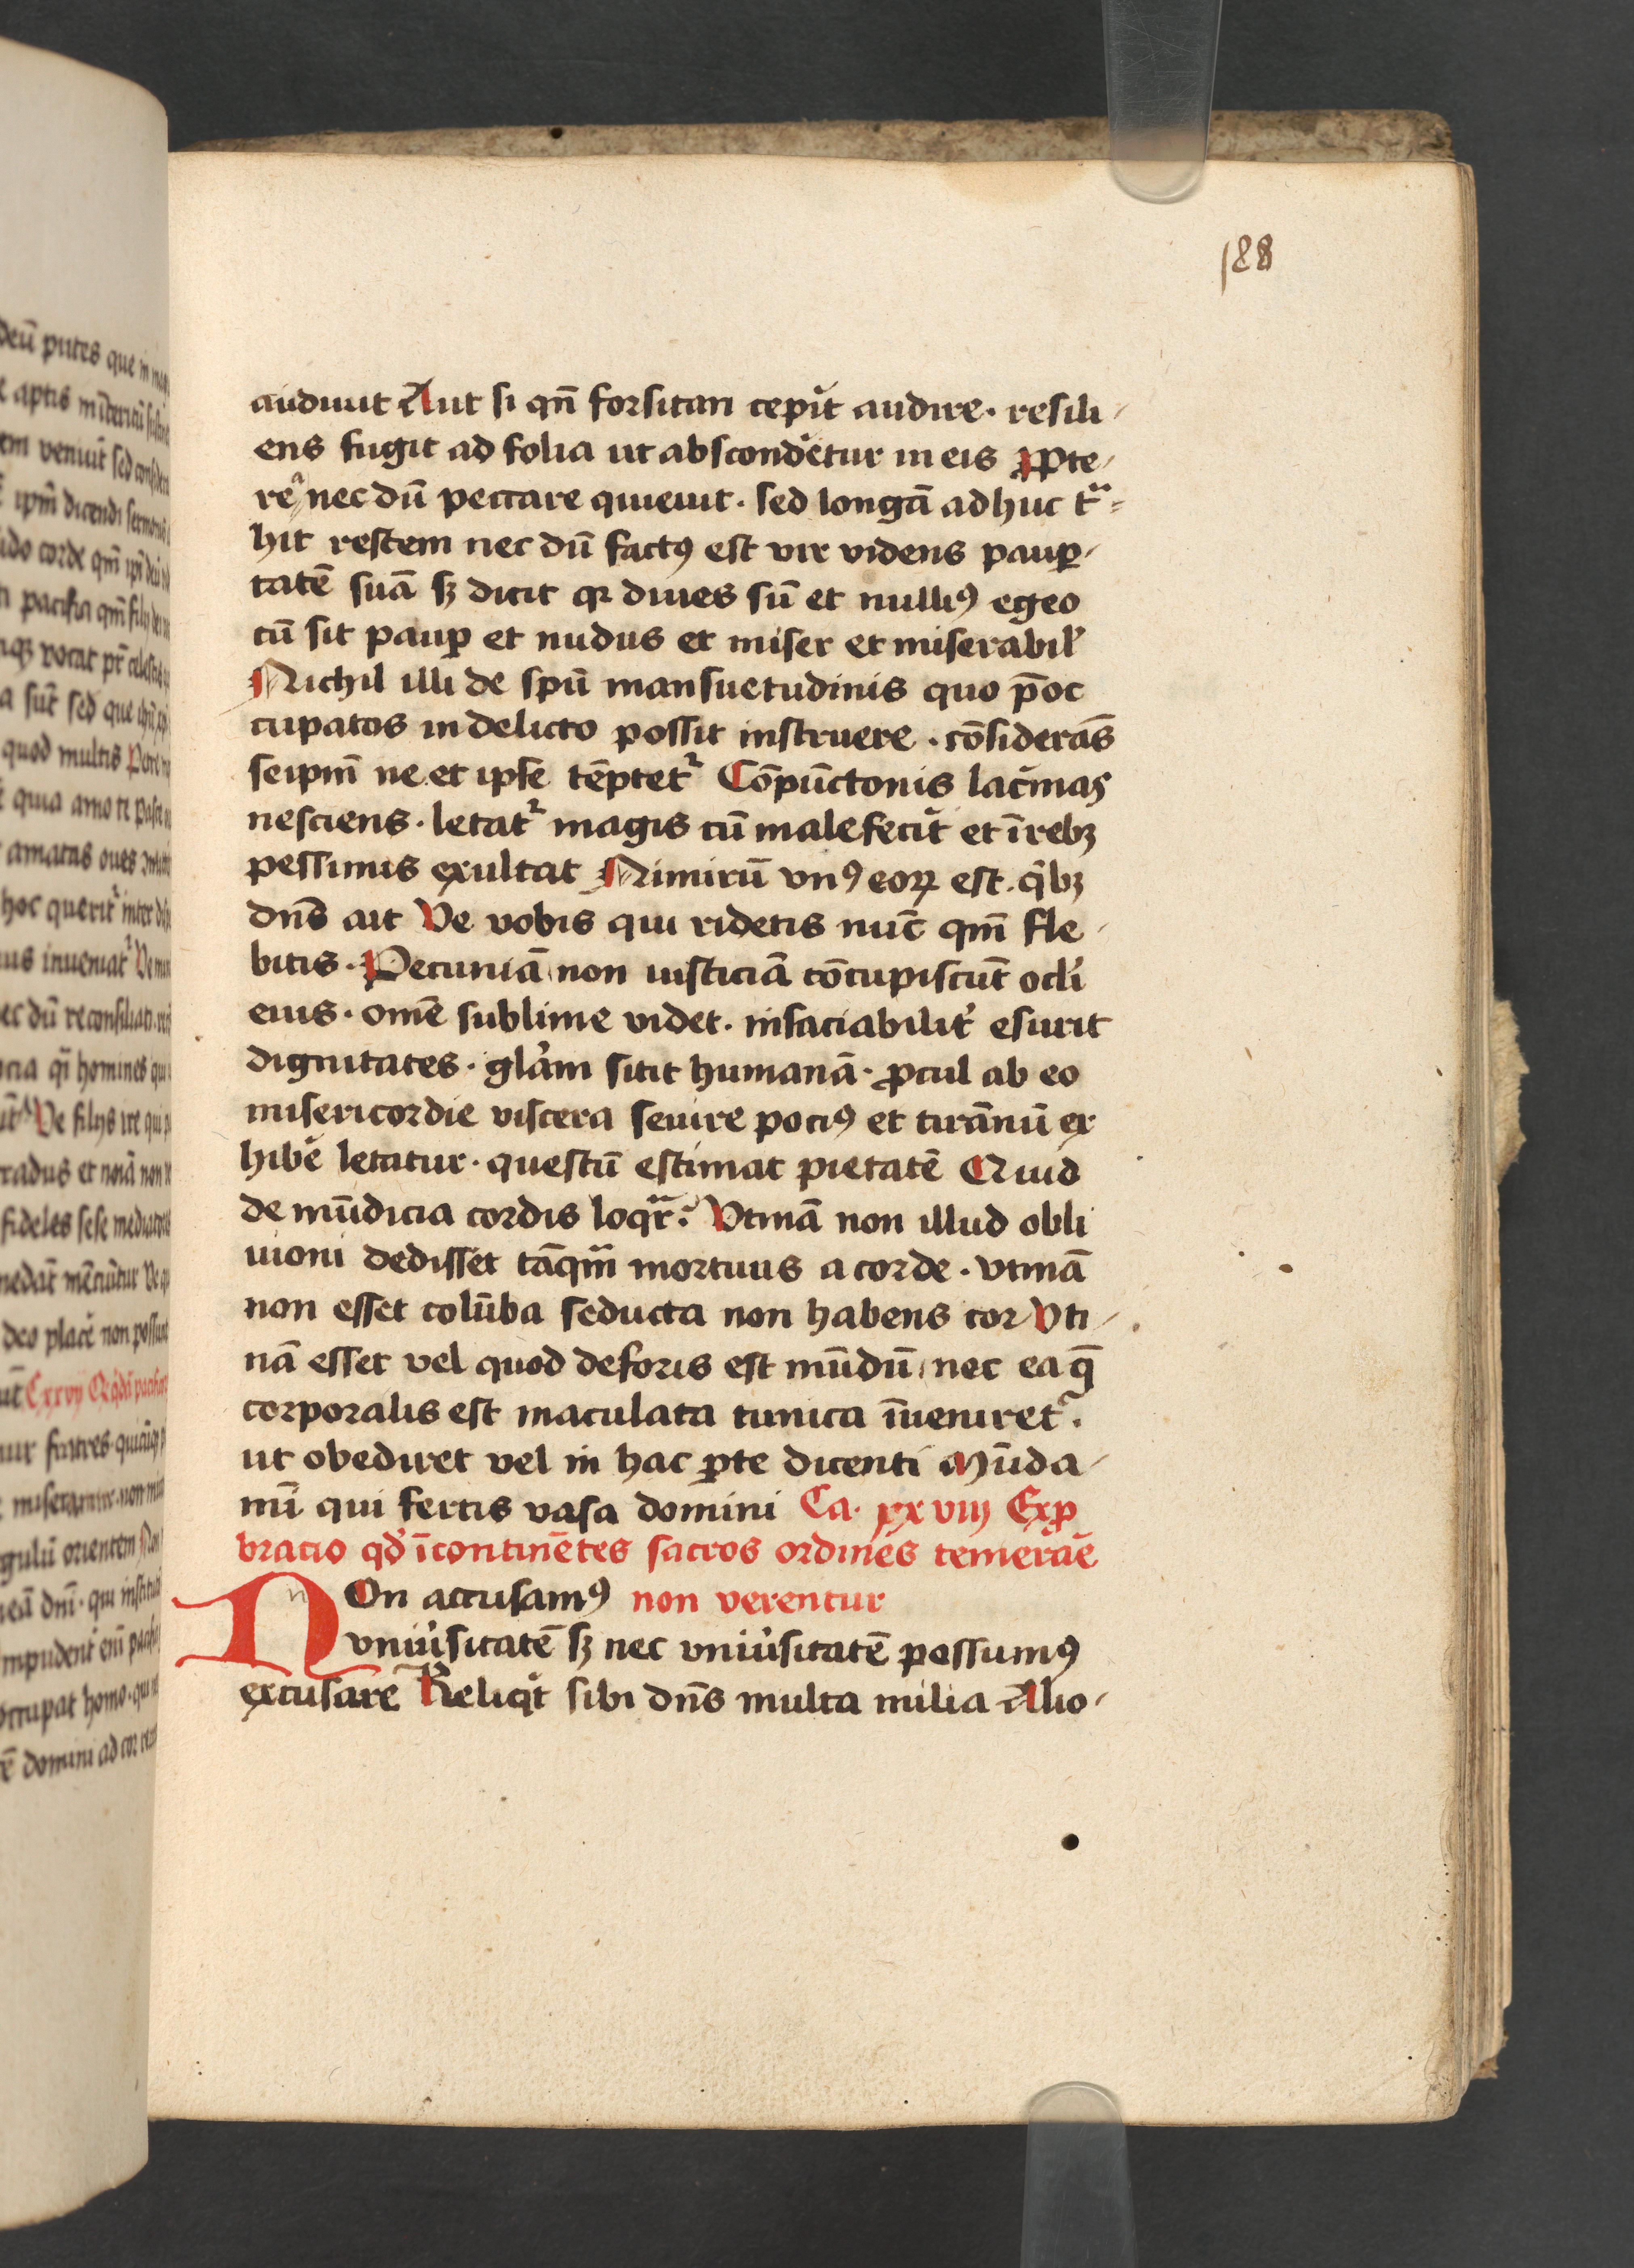 188
audiuit Aut si qn̄ forsitan cepit audire · resili-
ens fugit ad folia ut abscondetur in eis ꝓpte-
rea nec dū peccare quieuit · sed longā adhuc tͣ-
hit restem nec dū factꝰ est vir videns pauꝑ-
tatē suā sꝫ dicit qꝛ diues sū et nulliꝰ egeo
cū sit pauꝑ et nudus et miser et miserabil᷒
Nichil illi de spū mansuetudinis quo p̄oc
cupatos in delicto possit instruere · cōsiderās
seipm̄ ne et ipse tēptet᷑ Cōpūctonis lac̄mas
nesciens · letat᷑ magis cū malefecit et ī rebꝫ
pessimis exultat Nimirū vnꝰ eoꝝ est · qͥbꝫ
dn̄s ait Ve vobis qui ridetis nūc qm̄ fle-
bitis · Pecuniā non iusticiā cōcupiscūt ocli
eius · om̄e sublime videt · insaciabilit᷑ esurit
dignitates · glām sitit humanā · ꝓcul ab eo
misericordie viscera seuire pociꝰ et tirānū ex
hibē letatur · questū estimat pietatē Quid
de mūdicia cordis loqᷓr · Vtinā non illud obli
uioni dedisset tāqͣm mortuus a corde · vtinā
non esset colūba seducta non habens cor Vti-
nā esset vel quod deforis est mūdū nec ea q̄
corporalis est maculata tunica īueniret᷑ ·
ut obediret vel in hac ꝑte dicenti Mūda-
mī qui fertis vasa domini Ca · xxviij Exꝓ
bracio qd̓ īcontinētes sacros ordines temerāē
NOn accusamꝰ non verentur
vniu̓sitatē sꝫ nec vniu̓sitatē possumꝰ
excusare Reliqͥt sibi dn̄s multa milia Alio-